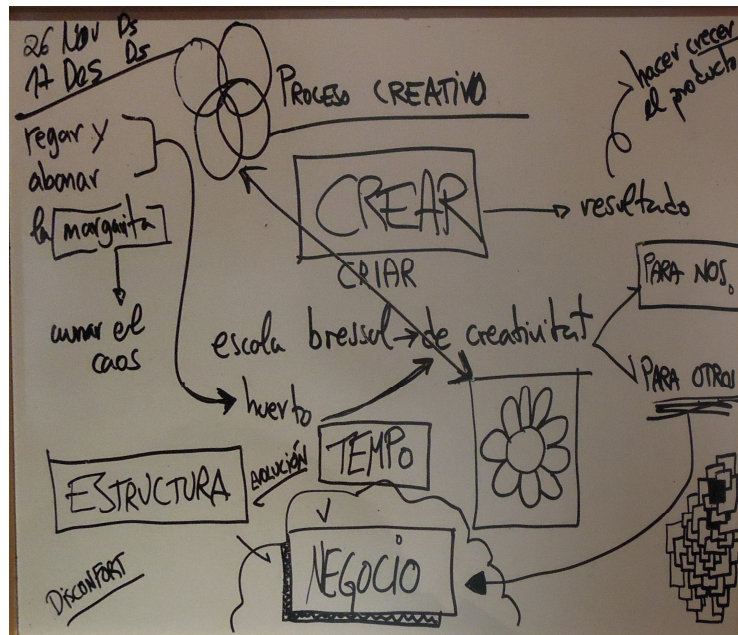 26 Nov Ds
17 Des Ds
PROCESO CREATIVO
hacer crecer
el producto
regar y
abonar
la margarita
CREAR
resultado
CRIAR
PARA NOS.
aunar el
caos
escola bressol → de creativitat
PARA OTROS
huerto
TEMPO
EVOLUCIÓN
ESTRUCTURA
NEGOCIO
DISCONFORT